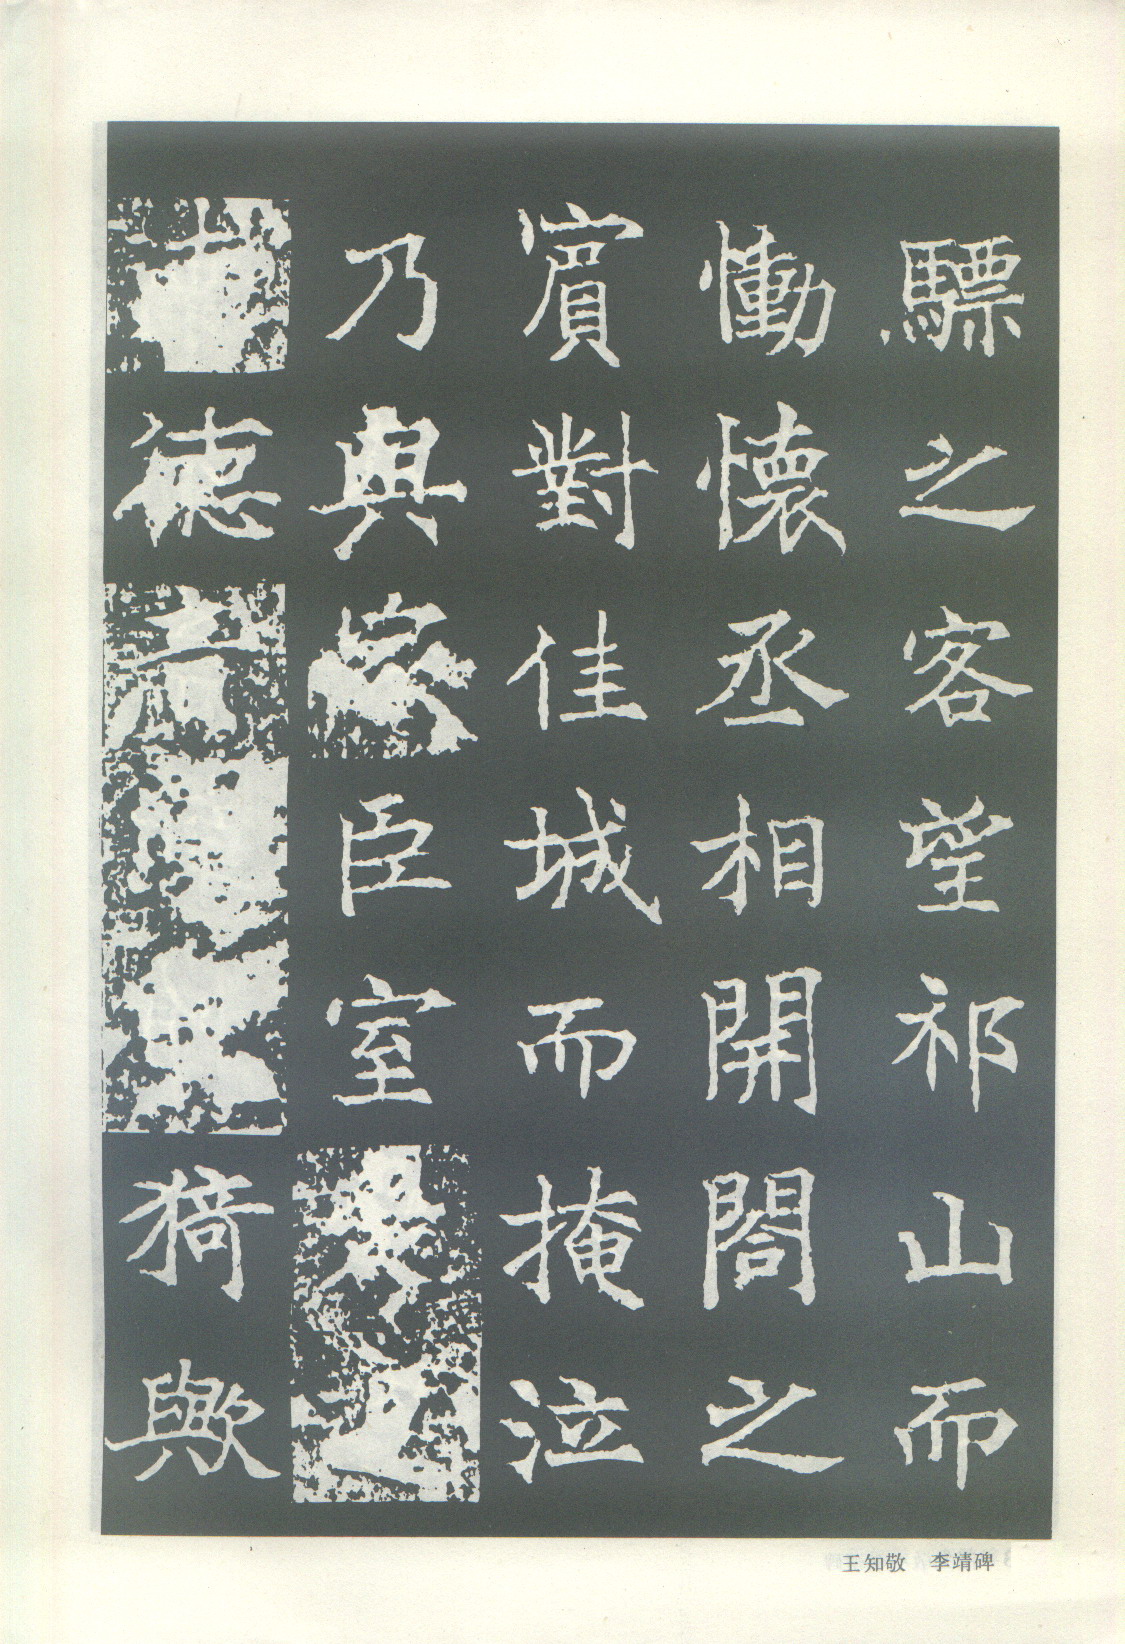 驃之客望祁山而
慟懷丞相開閤之
賓對佳城而掩泣
乃與 臣室
德 猗歟
王知敬 李靖碑